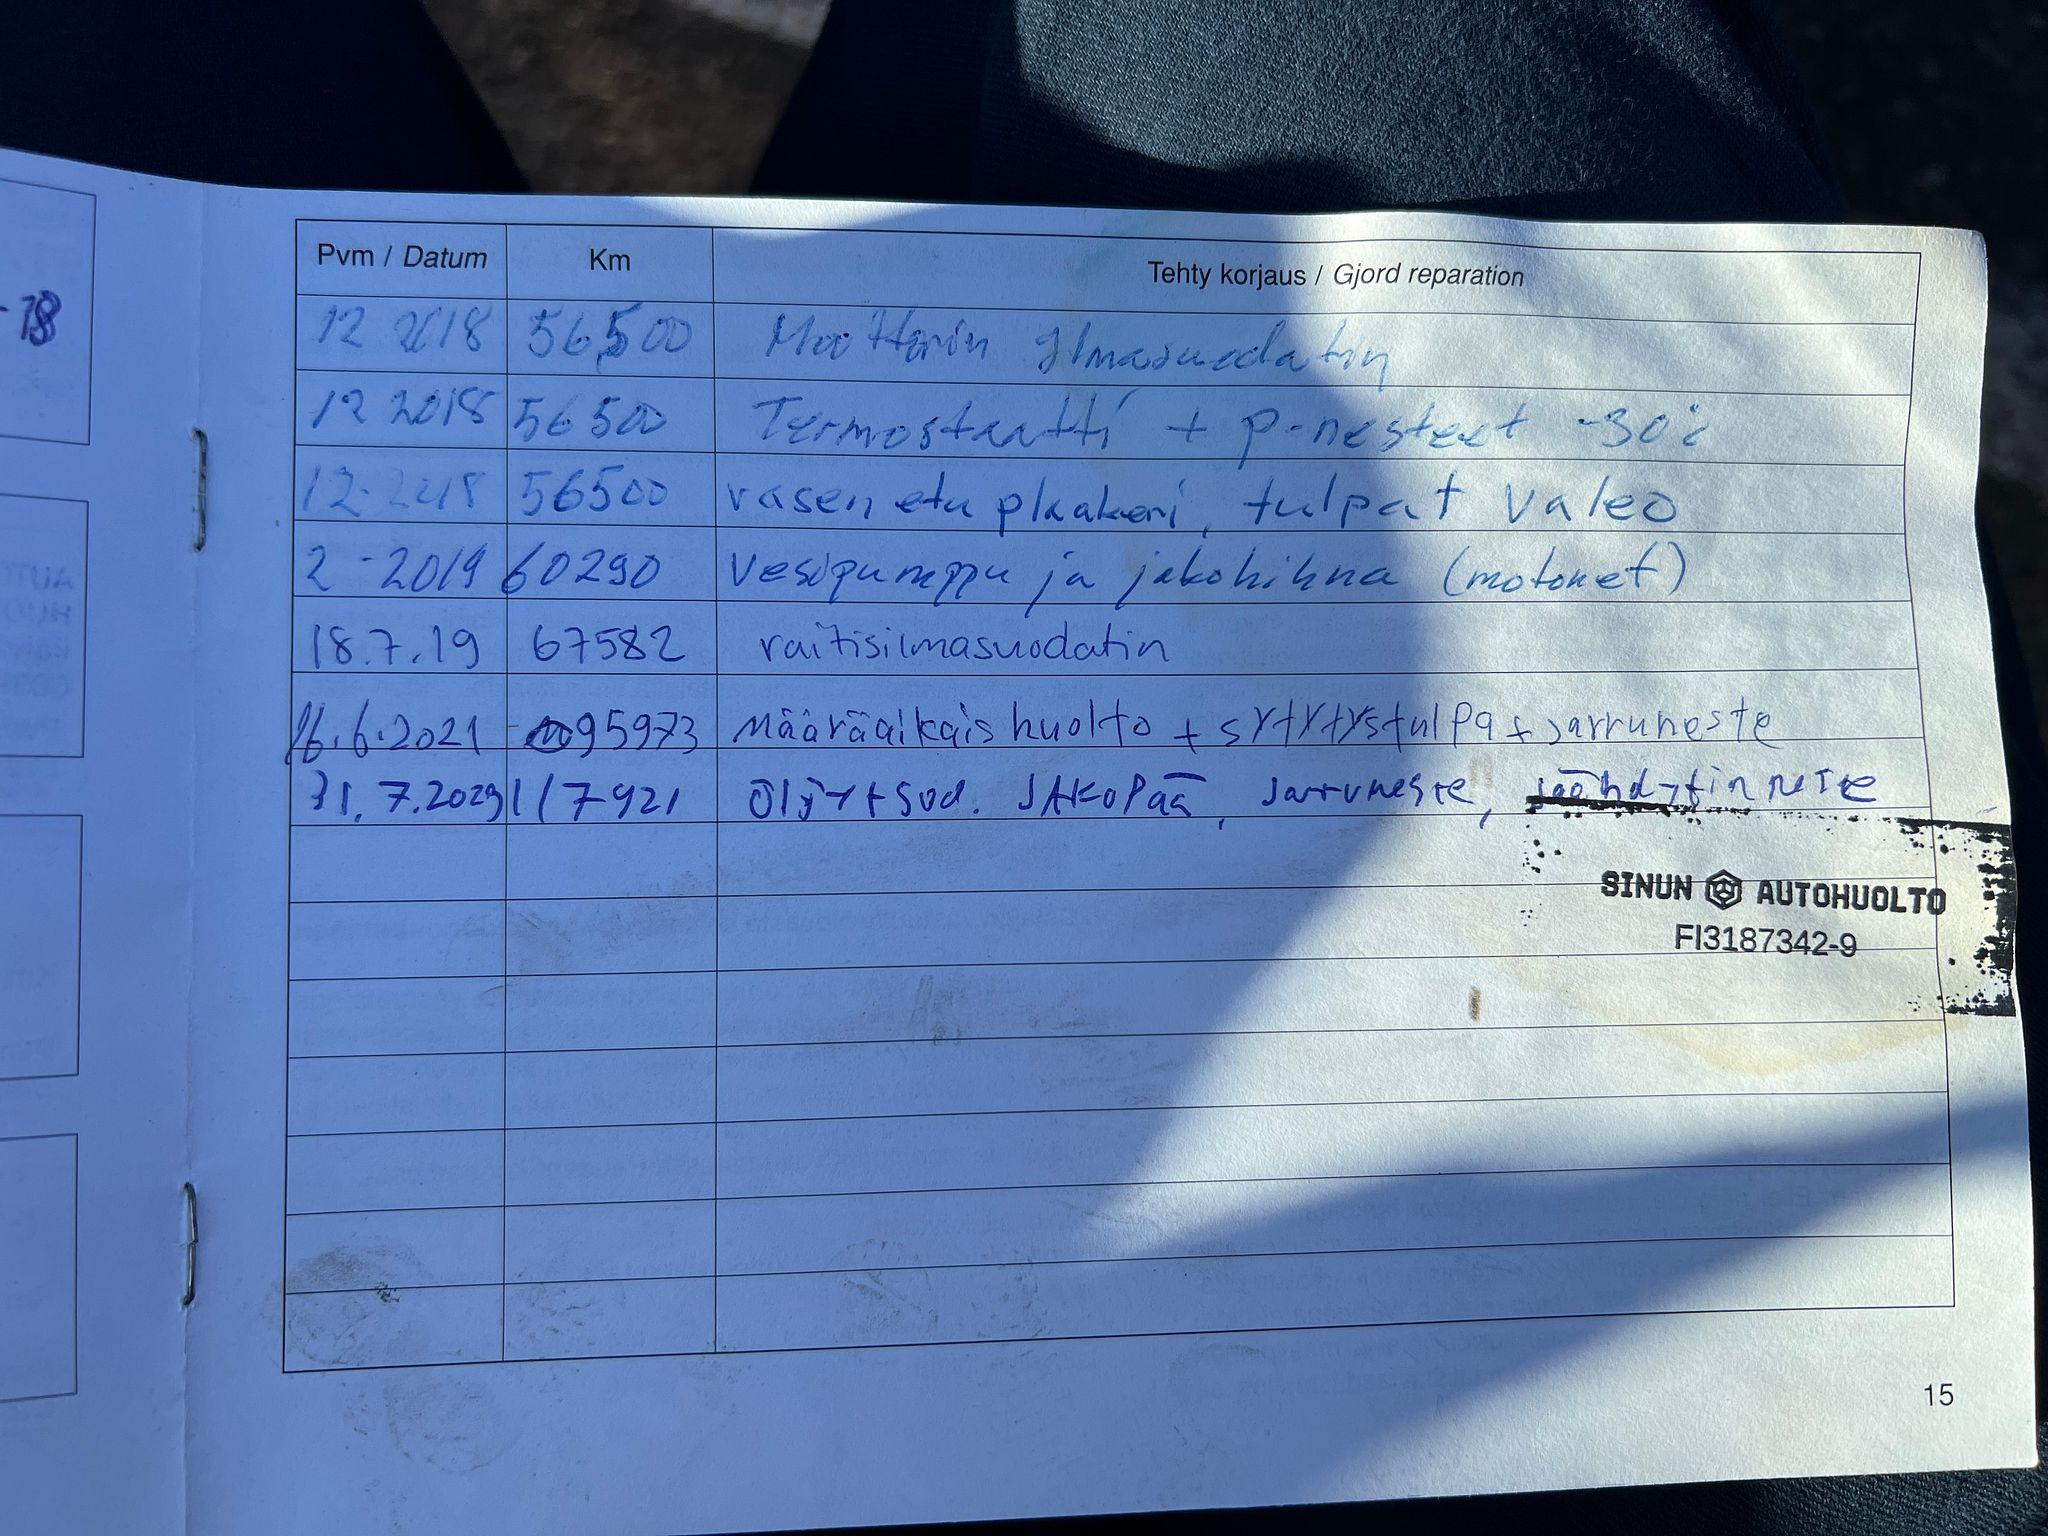 -18
Pvm / Datum Km Tehty korjaus / Gjord reparation
12 2018 56500 Moottorin ilmasuodatin
12 2018 56500 Termostaatti + p-nesteet -30°
12.2018 56500 vasen etu plaakeri, tulpat valeo
2-2019 60290 vesipumppu ja jakohihna (motonet)
18.7.19 67582 raitisilmasuodatin
16.6.2021 95973 Määräaikaishuolto + sytytystulpa + jarruneste
31.7.2023 117921 Öljyt+suod. JAKOPää, Jarruneste, jäähdytinneste
SINUN AUTOHUOLTO
FI3187342-9
15